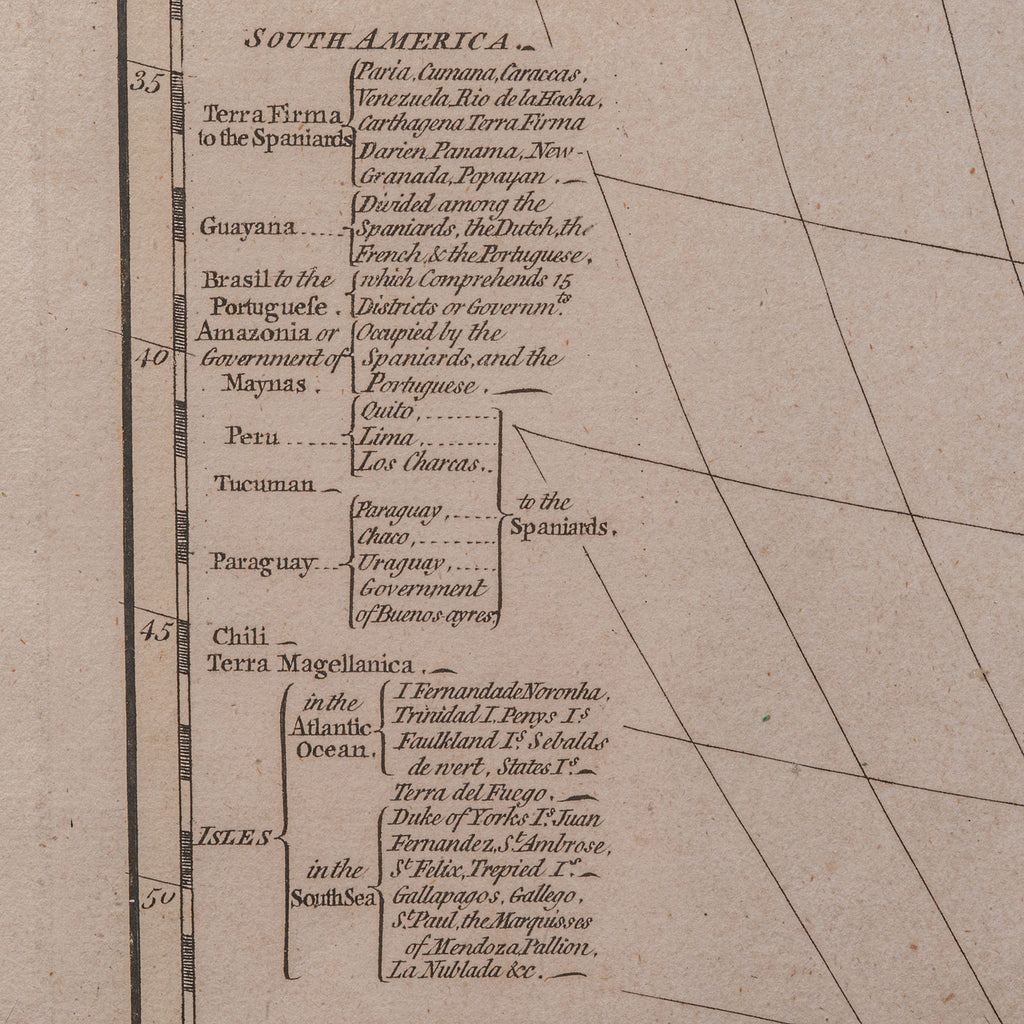 SOUTH AMERICA.
35
Terra Firma
to the Spaniards
Paria, Cumana, Caraccas,
Venezuela, Rio de la Hacha,
Carthagena Terra Firma
Darien, Panama, New-
Granada, Popayan.
Guayana
Divided among the
Spaniards, the Dutch, the
French, & the Portuguese.
Brasil to the
Portuguese.
which Comprehends 15
Districts or Governmts.
Amazonia or
Government of
Maynas.
Occupied by the
Spaniards, and the
Portuguese.
40
Peru
Quito,
Lima,
Los Charcas.
Tucuman
Paraguay
Paraguay,
Chaco,
Uraguay,
Government
of Buenos-ayres,
to the
Spaniards.
45
Chili
Terra Magellanica.
ISLES
in the
Atlantic
Ocean.
I Fernanda de Noronha,
Trinidad I, Penys Is
Faulkland Is. Sebalds
de wert, States Is.
Terra del Fuego.
in the
South Sea
Duke of Yorks Is. Juan
Fernandez, St. Ambrose,
St Felix, Trepied Is.
Gallapagos, Gallego,
St. Paul, the Marquisses
of Mendoza, Pallion,
La Nublada &c.
50